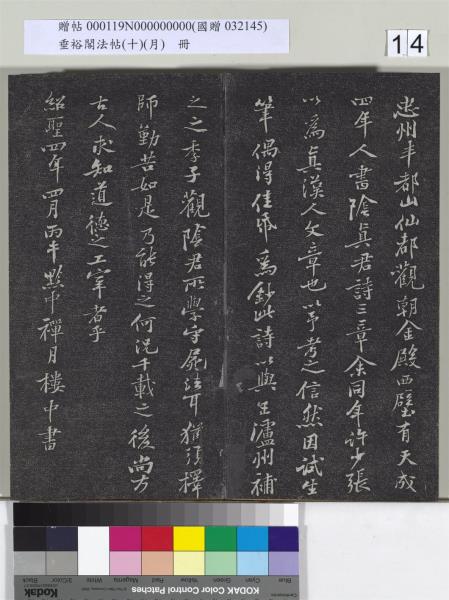 贈帖 000119N000000000(國贈 032145)
垂裕閣法帖(十)(月) 冊
14
忠州丰都山仙都觀朝金殿西壁有天成
四年人書陰真君詩三章余同年許少張
以為真漢人文章也以予考之信然因試生
筆偶得佳紙為鈔此詩以與王瀘州補
之之季子觀陰君所學守屍法耳猶須擇
師勤苦如是乃能得之何況千載之後尚方
古人求知道德之工宰者乎
紹聖四年四月丙午黔中禪月樓中書
Blue Cyan Green Yellow Red Magenta White 3/Color Black
KODAK Color Control Patches